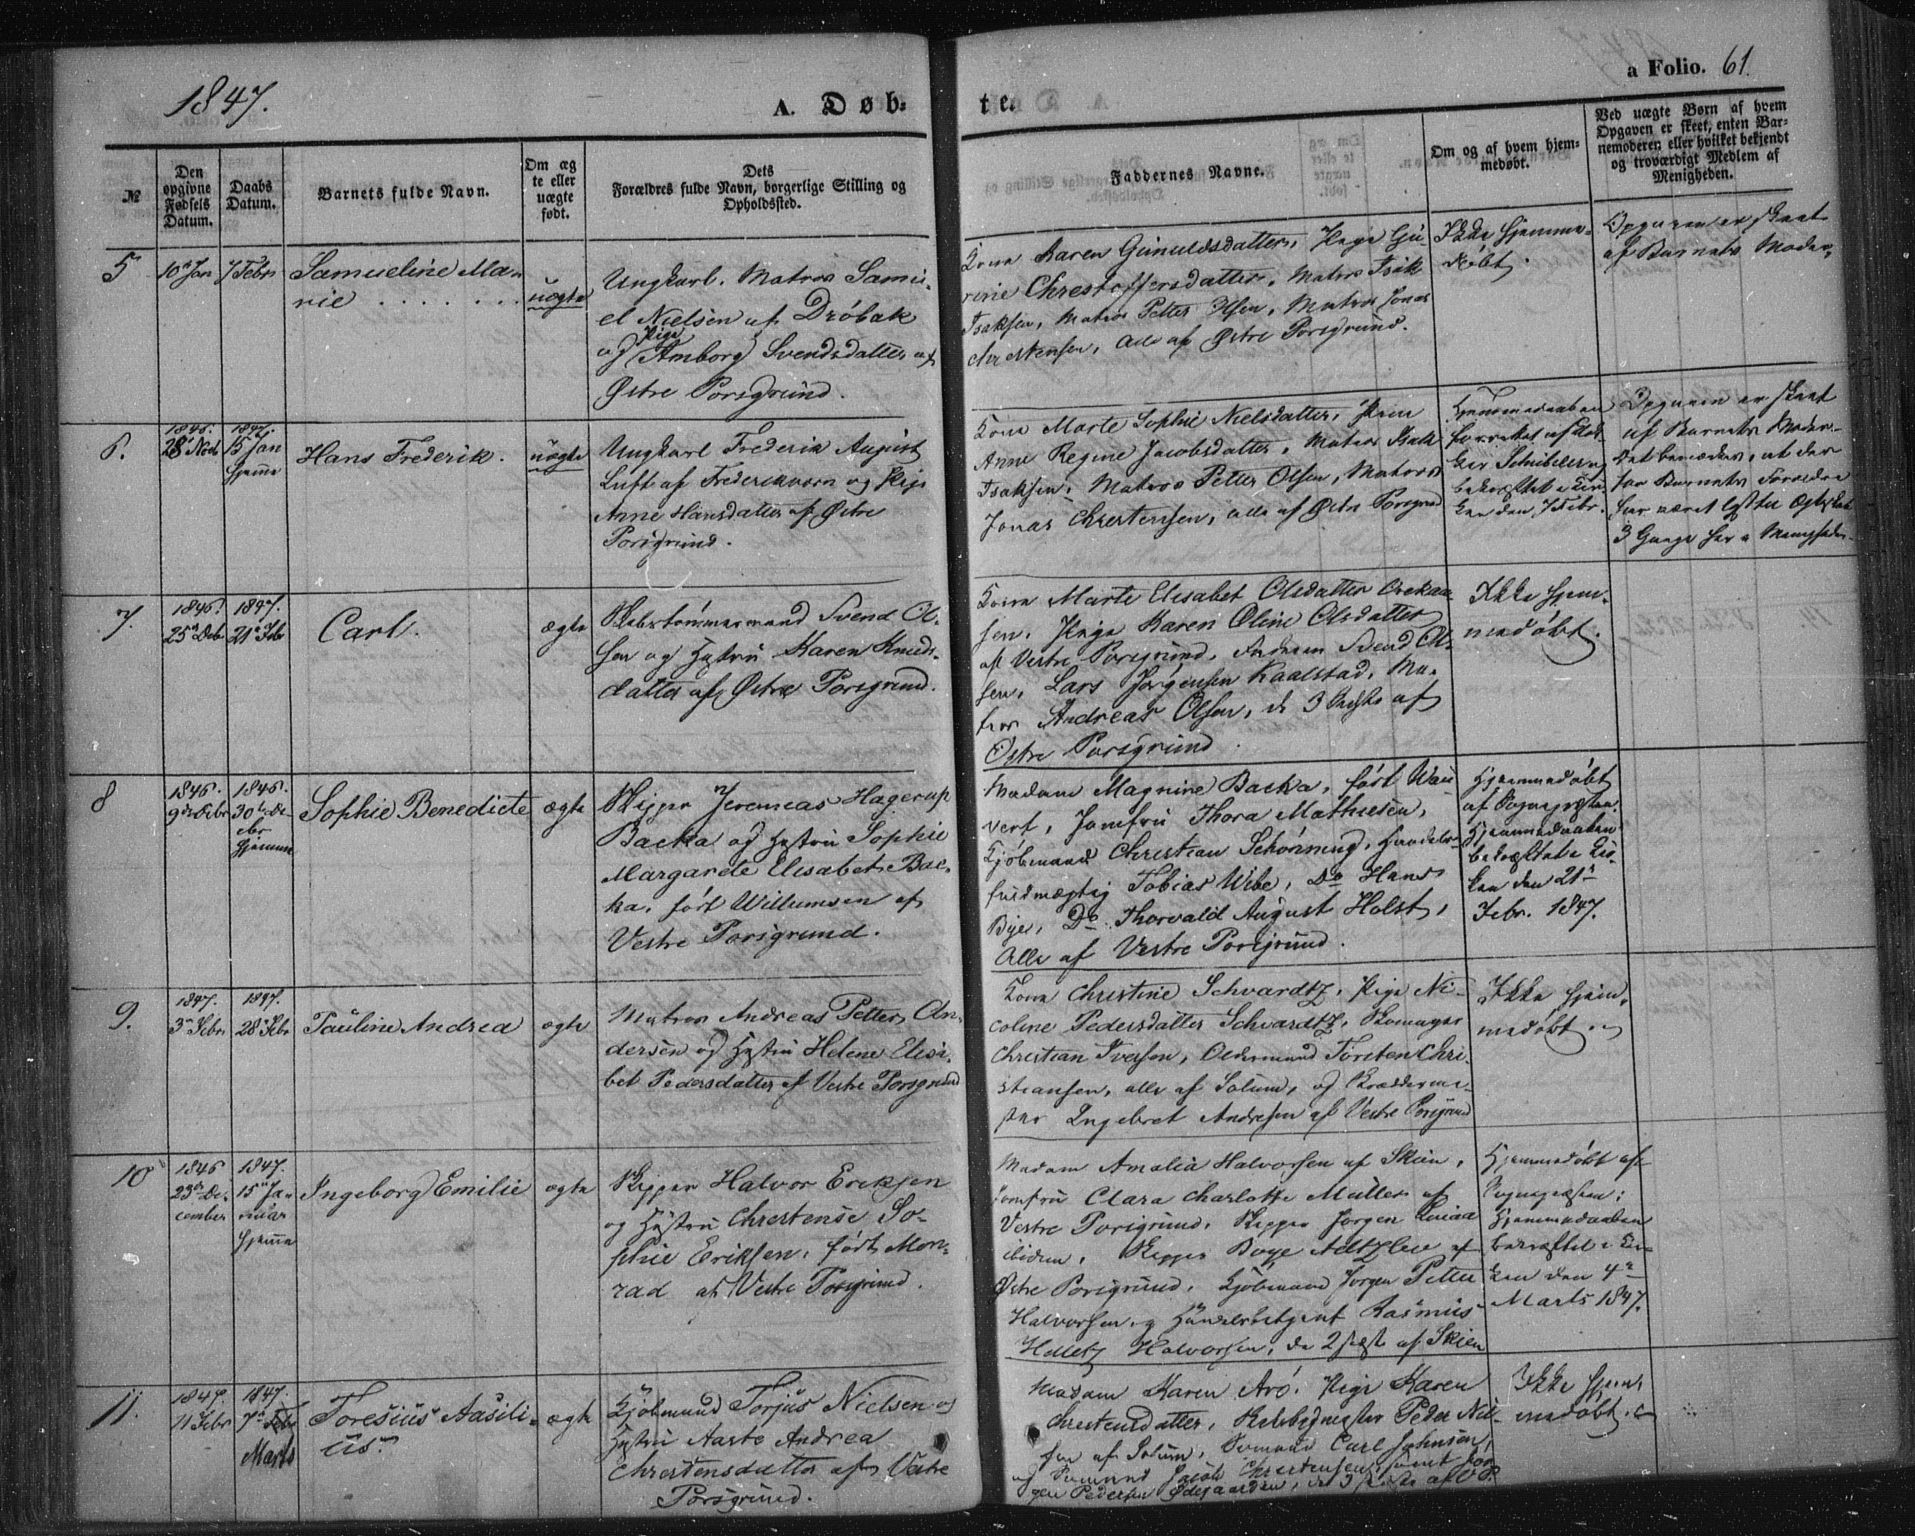 1847.
A. Døb-
te.
a Folio. 61.
№
Den opgivne Fødsels Datum.
Daabs Datum.
Barnets fulde Navn.
Om ægte eller uægte født.
Dets Forældres fulde Navn, borgerlige Stilling og Opholdssted.
Faddernes Navne.
Om og af hvem hjemmedøbt.
Ved uægte Børn af hvem Opgaven er skeet, enten Barnemoderen eller hvilket bekjendt og troværdigt Medlem af Menigheden.
5
10 Jan
7 Febr
Samueline Ma-
rie . . . . . . .
uægte
Ungkarl. Matros Samu-
el Nielsen af Drøbak
og Pige Amborg Svendsdatter af
Østre Porsgrund.
Kone Karen Gunuldsdatter, Pige Gu-
rine Chrestoffersdatter, Matros Isak
Isaksen, Matros Petter Olsen, Matros Jonas
Christensen, alle af Østre Porsgrund.
Ikke hjemme-
døbt.
Opgaven er skeet
af Barnets Moder.
6.
1846.
28 Novb
1847.
15 Jan
hjemme
Hans Frederik.
uægte
Ungkarl Frederik August
Luft af Frederiksværn og Pige
Anne Hansdatter af Østre
Porsgrund.
Kone Marte Sophie Nielsdatter, Pige
Anne Regine Jacobsdatter, Matros Isak
Isaksen, Matros Petter Olsen, Matros
Jonas Chrestensen, alle af Østre Porsgrund
Hjemmedaaben
forrettet af Klok-
ker Schibeler og
bekræftet i Kir-
ken den 7 Febr.
Opgaven er skeet
af Barnets Moder.
Det bemærkes, at der
for Barnets Forældre
har været lyst til Ægteskab
3 Gange her i Menigheden
7.
1846.
25 Decb
1847.
21 Febr
Carl.
ægte
Skibstømmermand Svend Ol-
sen og Hustru Karen Knuds-
datter af Østre Porsgrund.
Kone Marte Elisabet Olsdatter
sen, Pige Karen Oline Olsdatter
af Vestre Porsgrund, Svend Ol-
sen, Lars Jørgensen Kaalstad, Ma-
tros Andreas Olsen, de 3 sidste af
Østre Porsgrund.
Ikke hjem-
medøbt.
8
1846.
9 Decbr
1846.
30 De-
cbr
hjemme
Sophie Benedicte
ægte
Skipper Jeremeas Hagerup
Backa og Hustru Sophie
Margarete Elisabet Bac-
ka, født Willumsen af
Vestre Porsgrund.
Madam Magnine Backa, født Wau-
vert, Jomfru Thora Mathiesen,
Kjøbmand Christian Schønning, Handels-
fuldmægtig Tobias Wibe, Do Hans
Bye, Do Thorvald August Holst,
Alle af Vestre Porsgrund.
Hjemmedøbt
af Sognepræsten.
Hjemmedaaben
bekræftet i Kir-
ken den 21
Febr. 1847.
9.
1847.
3 Febr
1847.
28 Febr
Pauline Andrea
ægte
Matros Andreas Petter An-
dersen og Hustru Helene Elisa-
bet Pedersdatter af Vestre Porsgrund
Kone Christine Schvardtz, Pige Ni-
coline Pedersdatter Schvardtz, Skomager
Christian Iversen, Oldermand Torsten Chri-
stiansen, alle af Solum, og Skrædderme-
ster Ingebret Andresen af Vestre Porsgrund
Ikke hjem-
medøbt.
10
1846
23 De-
cember
1847.
15 Ja-
nuar
hjemme
Ingeborg Emilie
ægte
Skipper Halvor Eriksen
og Hustru Chrestense So-
phie Eriksen, født Mon-
rad af Vestre Porsgrund.
Madam Amalia Halvorsen af Skien,
Jomfru Clara Charlotte Müller af
Vestre Porsgrund, Skipper Jørgen
Skipper Boye af
Østre Porsgrund, Kjøbmand Jørgen Petter
Halvorsen og Handelsbetjent Rasmus
Halvorsen, de 2 sidste af Skien
Hjemmedøbt af
Sognepræsten;
Hjemmedaaben
bekræftet i Kir-
ken den 4
Marts 1847.
11.
1847.
11 Febr
1847.
7
Marts
Toresius Aasili-
us.
ægte
Kjøbmand Torjus Nielsen og
Hustru Aaste Andrea
Chrestensdatter af Vestre
Porsgrund.
Madam Karen Arø, Pige Karen
Chrestensdatter, Peder Niel-
sen af Solum, Sømand Carl Johnsen,
og Sømand Jacob Chrestensen samt Jør-
gen Pedersen Ødegaarden, de 3 sidste af V. P.
Ikke hjem-
medøbt.